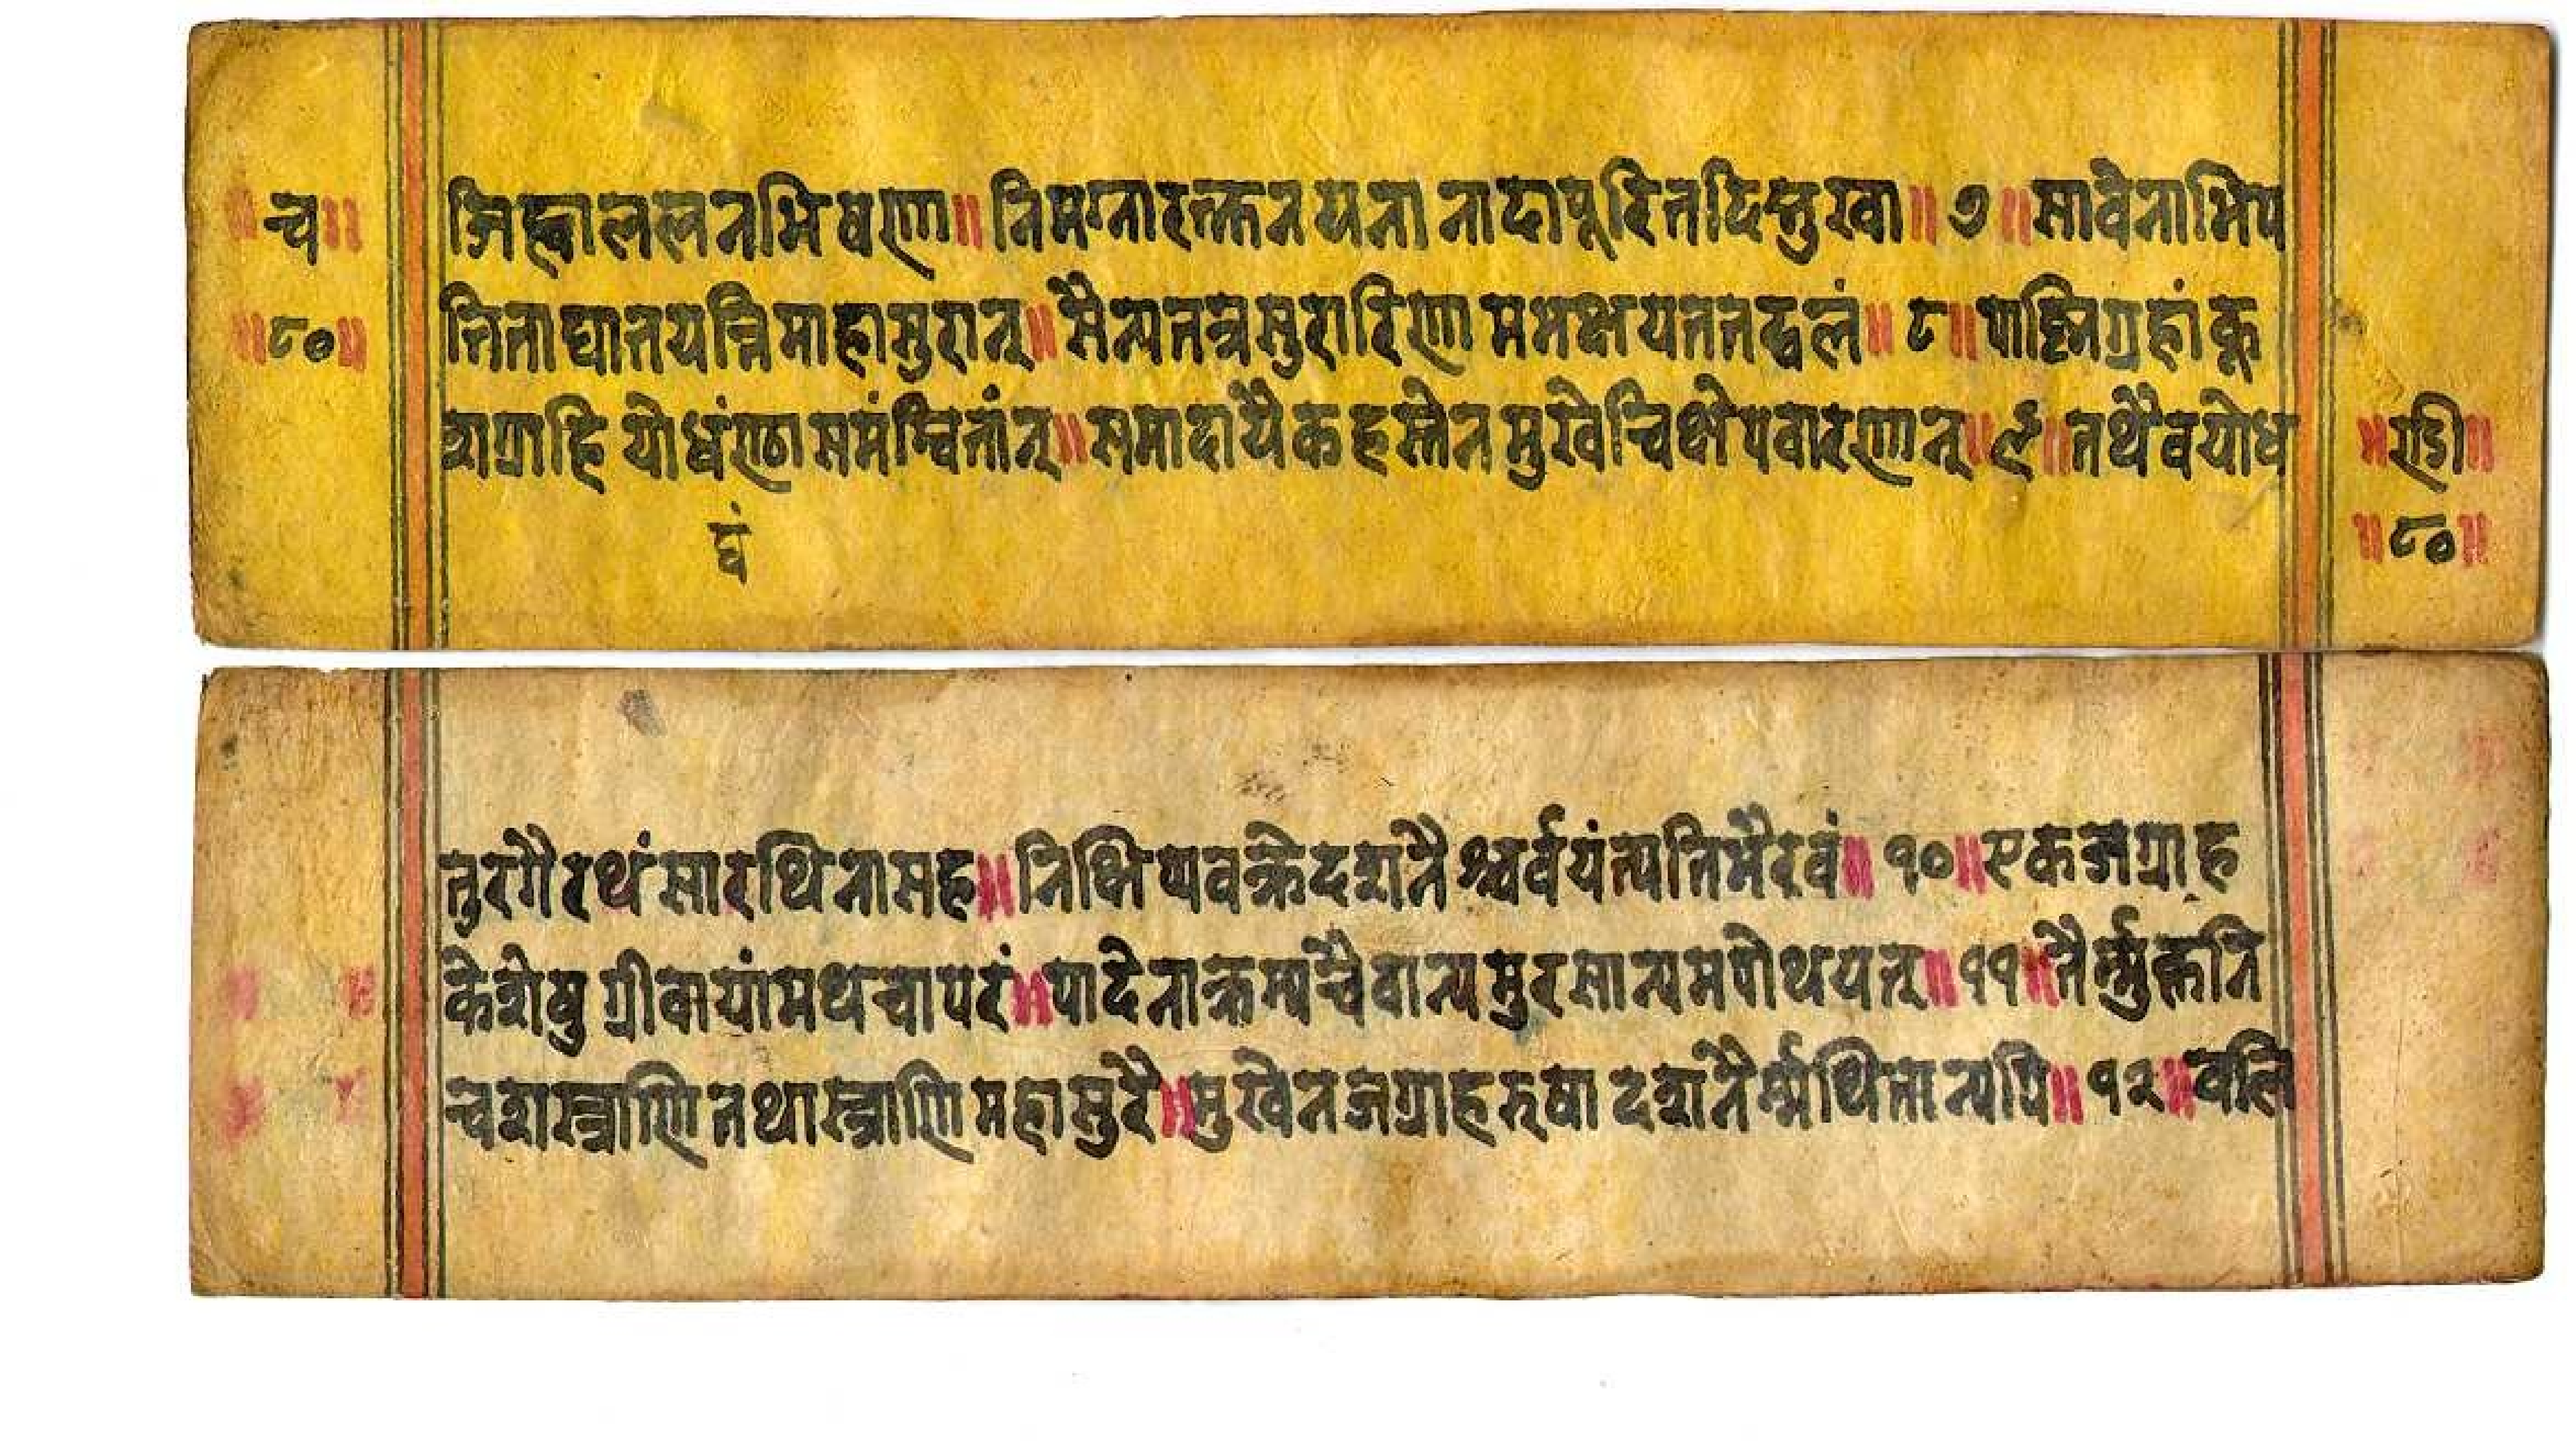 च॥
॥८०॥
जिह्वाललनभिषणा॥ निमग्नारक्तनयना नादापूरितदिस्तुखा॥ ७ ॥सावेनाभिप
तिताघातयन्निमाहासुरान्॥सैन्यतत्रसुरारिणा ममभक्षयततद्वलं॥ ८॥पार्ष्निग्रहांकू
शग्राहि योधंघण्ठासमंन्वितांन्॥समादायैकहस्तेन मुखेचिक्षेपवारणान्॥९॥तथैवयोध
घं
॥रडी॥
॥८०॥
तुरगैरथंसारथिनासह॥निक्षिप्यवक्रेदशनैश्चर्वयंत्यतिभैरवं॥ १०॥एकजग्राह
केशेषु ग्रीवायांमथचापरं॥पादेनाक्रम्यचैवान्यमुरसान्यमपोथयत्॥११॥तैर्म्मुक्तनि
चशस्त्राणि तथास्त्राणि महासुरै॥मुखेनजग्राहरुषा दशनैर्म्मथितान्यपि॥१२॥वलि